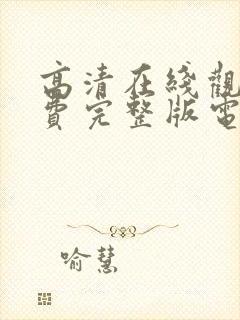 高清在綫觀
費完整版電
喻慧